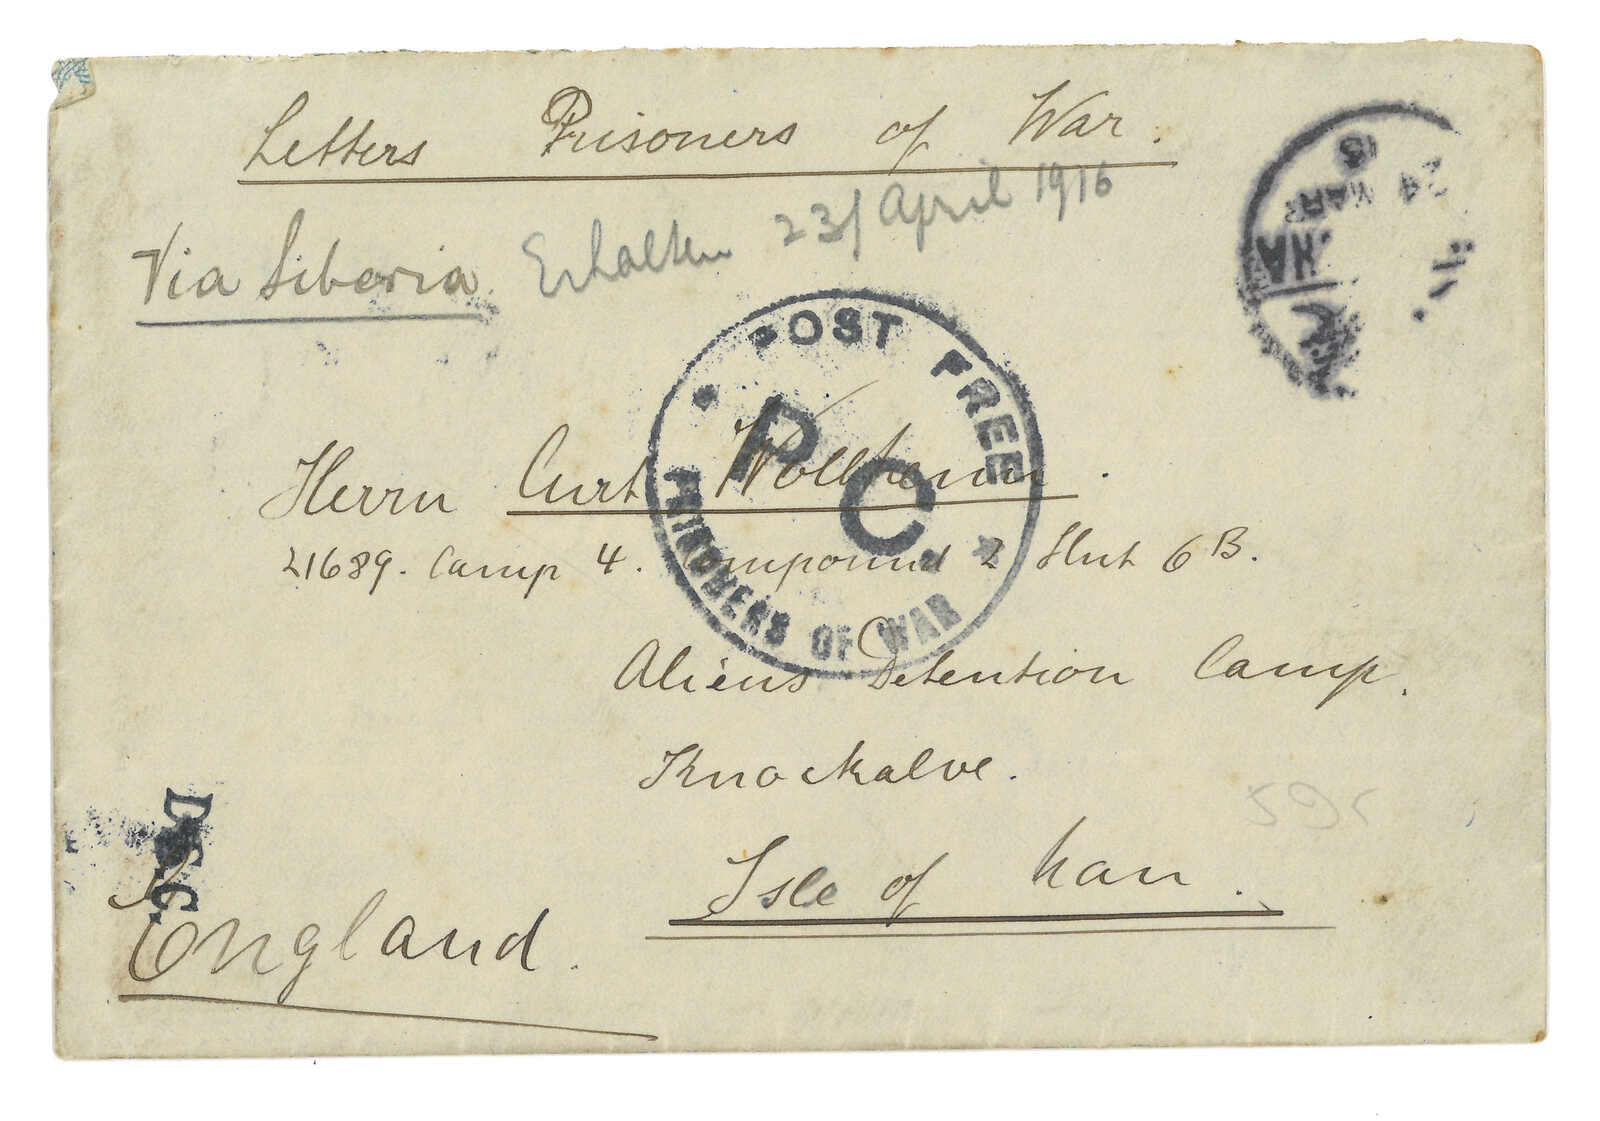 Letters Prisoners of War.
Via Siberia. Erhalten 23/April 1916
24 MAR
POST FREE
P.C.
PRISONERS OF WAR
Herrn Curt
21689. Camp 4. Compound 2 Hut 6 B.
Aliens Detention Camp.
Knockalve.
Isle of Man.
England.